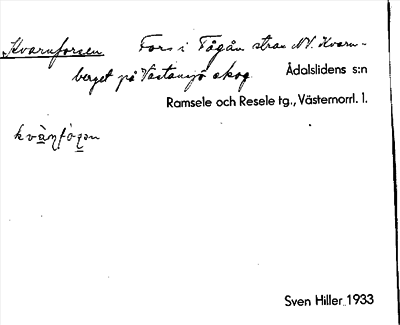 Kvarnforsen Fors i Fågån strax NV. Kvarn-
berget på Västansjö skog Ådalslidens s:n
Ramsele och Resele tg., Västernorrl. l.
kvànfòʂən
Sven Hiller 1933